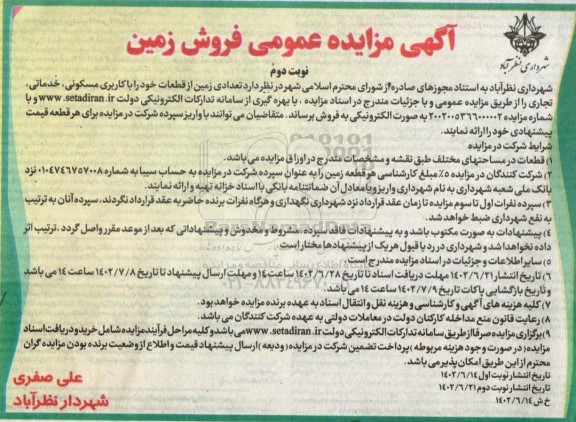 شهرداری نظرآباد
آگهی مزایده عمومی فروش زمین
نوبت دوم
شهرداری نظرآباد به استناد مجوزهای صادره از شورای محترم اسلامی شهر در نظر دارد تعدادی زمین از قطعات خود را با کاربری مسکونی، خدماتی،
تجاری را از طریق مزایده عمومی و با جزئیات مندرج در اسناد مزایده ، با بهره گیری از سامانه تدارکات الکترونیکی دولت www.setadiran.ir و با
شماره مزایده ۲۰۰۲۰۰۵۳۶۶۰۰۰۰۰۲ به صورت الکترونیکی به فروش برساند. متقاضیان می توانند با واریز سپرده شرکت در مزایده برای هر قطعه قیمت
پیشنهادی خود را ارائه نمایند.
شرایط شرکت در مزایده
۱) قطعات در مساحتهای مختلف طبق نقشه و مشخصات مندرج در اوراق مزایده می باشد.
۲) شرکت کنندگان در مزایده ۵٪ مبلغ کارشناسی هر قطعه زمین را به عنوان سپرده شرکت در مزایده به حساب سیبا به شماره ۰۱۰۴۷۴۶۷۵۷۰۰۸ نزد
بانک ملی شعبه شهرداری به نام شهرداری واریز و یا معادل آن ضمانتنامه بانکی یا اسناد خزانه تهیه و ارائه نمایند.
۳) سپرده نفرات اول تا سوم مزایده تا زمان عقد قرارداد نزد شهرداری نگهداری و هرگاه نفرات برنده حاضر به عقد قرارداد نگردند، سپرده آنان به ترتیب
به نفع شهرداری ضبط خواهد شد.
۴) پیشنهادات به صورت مکتوب باشد و به پیشنهادات فاقد سپرده، مشروط و مخدوش و پیشنهاداتی که بعد از موعد مقرر واصل گردد ،ترتیب اثر
داده نخواهد شد و شهرداری در رد یا قبول هریک از پیشنهادها مختار است
۵) سایر اطلاعات و جزئیات در اسناد مزایده مندرج است
۶) تاریخ انتشار ۱۴۰۲/۶/۲۱ مهلت دریافت اسناد تا تاریخ ۱۴۰۲/۶/۲۸ ساعت ۱۴ و مهلت ارسال پیشنهاد تا تاریخ ۱۴۰۲/۷/۸ ساعت ۱۴ می باشد
و تاریخ بازگشایی پاکات تاریخ ۱۴۰۲/۷/۹ ساعت ۱۴ می باشد
۷) کلیه هزینه های آگهی و کارشناسی و هزینه نقل و انتقال اسناد به عهده برنده مزایده خواهد بود.
۸) رعایت قانون منع مداخله کارکنان دولت در معاملات دولتی به عهده شرکت کنندگان می باشد.
۹) برگزاری مزایده صرفا از طریق سامانه تدارکات الکترونیکی دولت www.setadiran.ir می باشد و کلیه مراحل فرآیند مزایده شامل خرید و دریافت اسناد
مزایده( در صورت وجود هزینه مربوطه )پرداخت تضمین شرکت در مزایده( ودیعه )ارسال پیشنهاد قیمت و اطلاع از وضعیت برنده بودن مزایده گران
محترم از این طریق امکان پذیر می باشد.
تاریخ انتشار نوبت اول ۱۴۰۲/۶/۱۴
تاریخ انتشار نوبت دوم ۱۴۰۲/۶/۲۱
خ ش ۱۴۰۲/۶/۱۴
علی صفری
شهردار نظرآباد